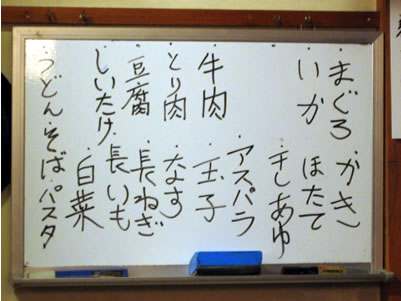 ・まぐろ ・かき
・いか ・ほたて
・干しあゆ
・アスパラ
・牛肉 ・玉子
・とり肉 ・なす
・豆腐 ・長ねぎ
・しいたけ ・長いも
・白菜
・うどん・そば・パスタ